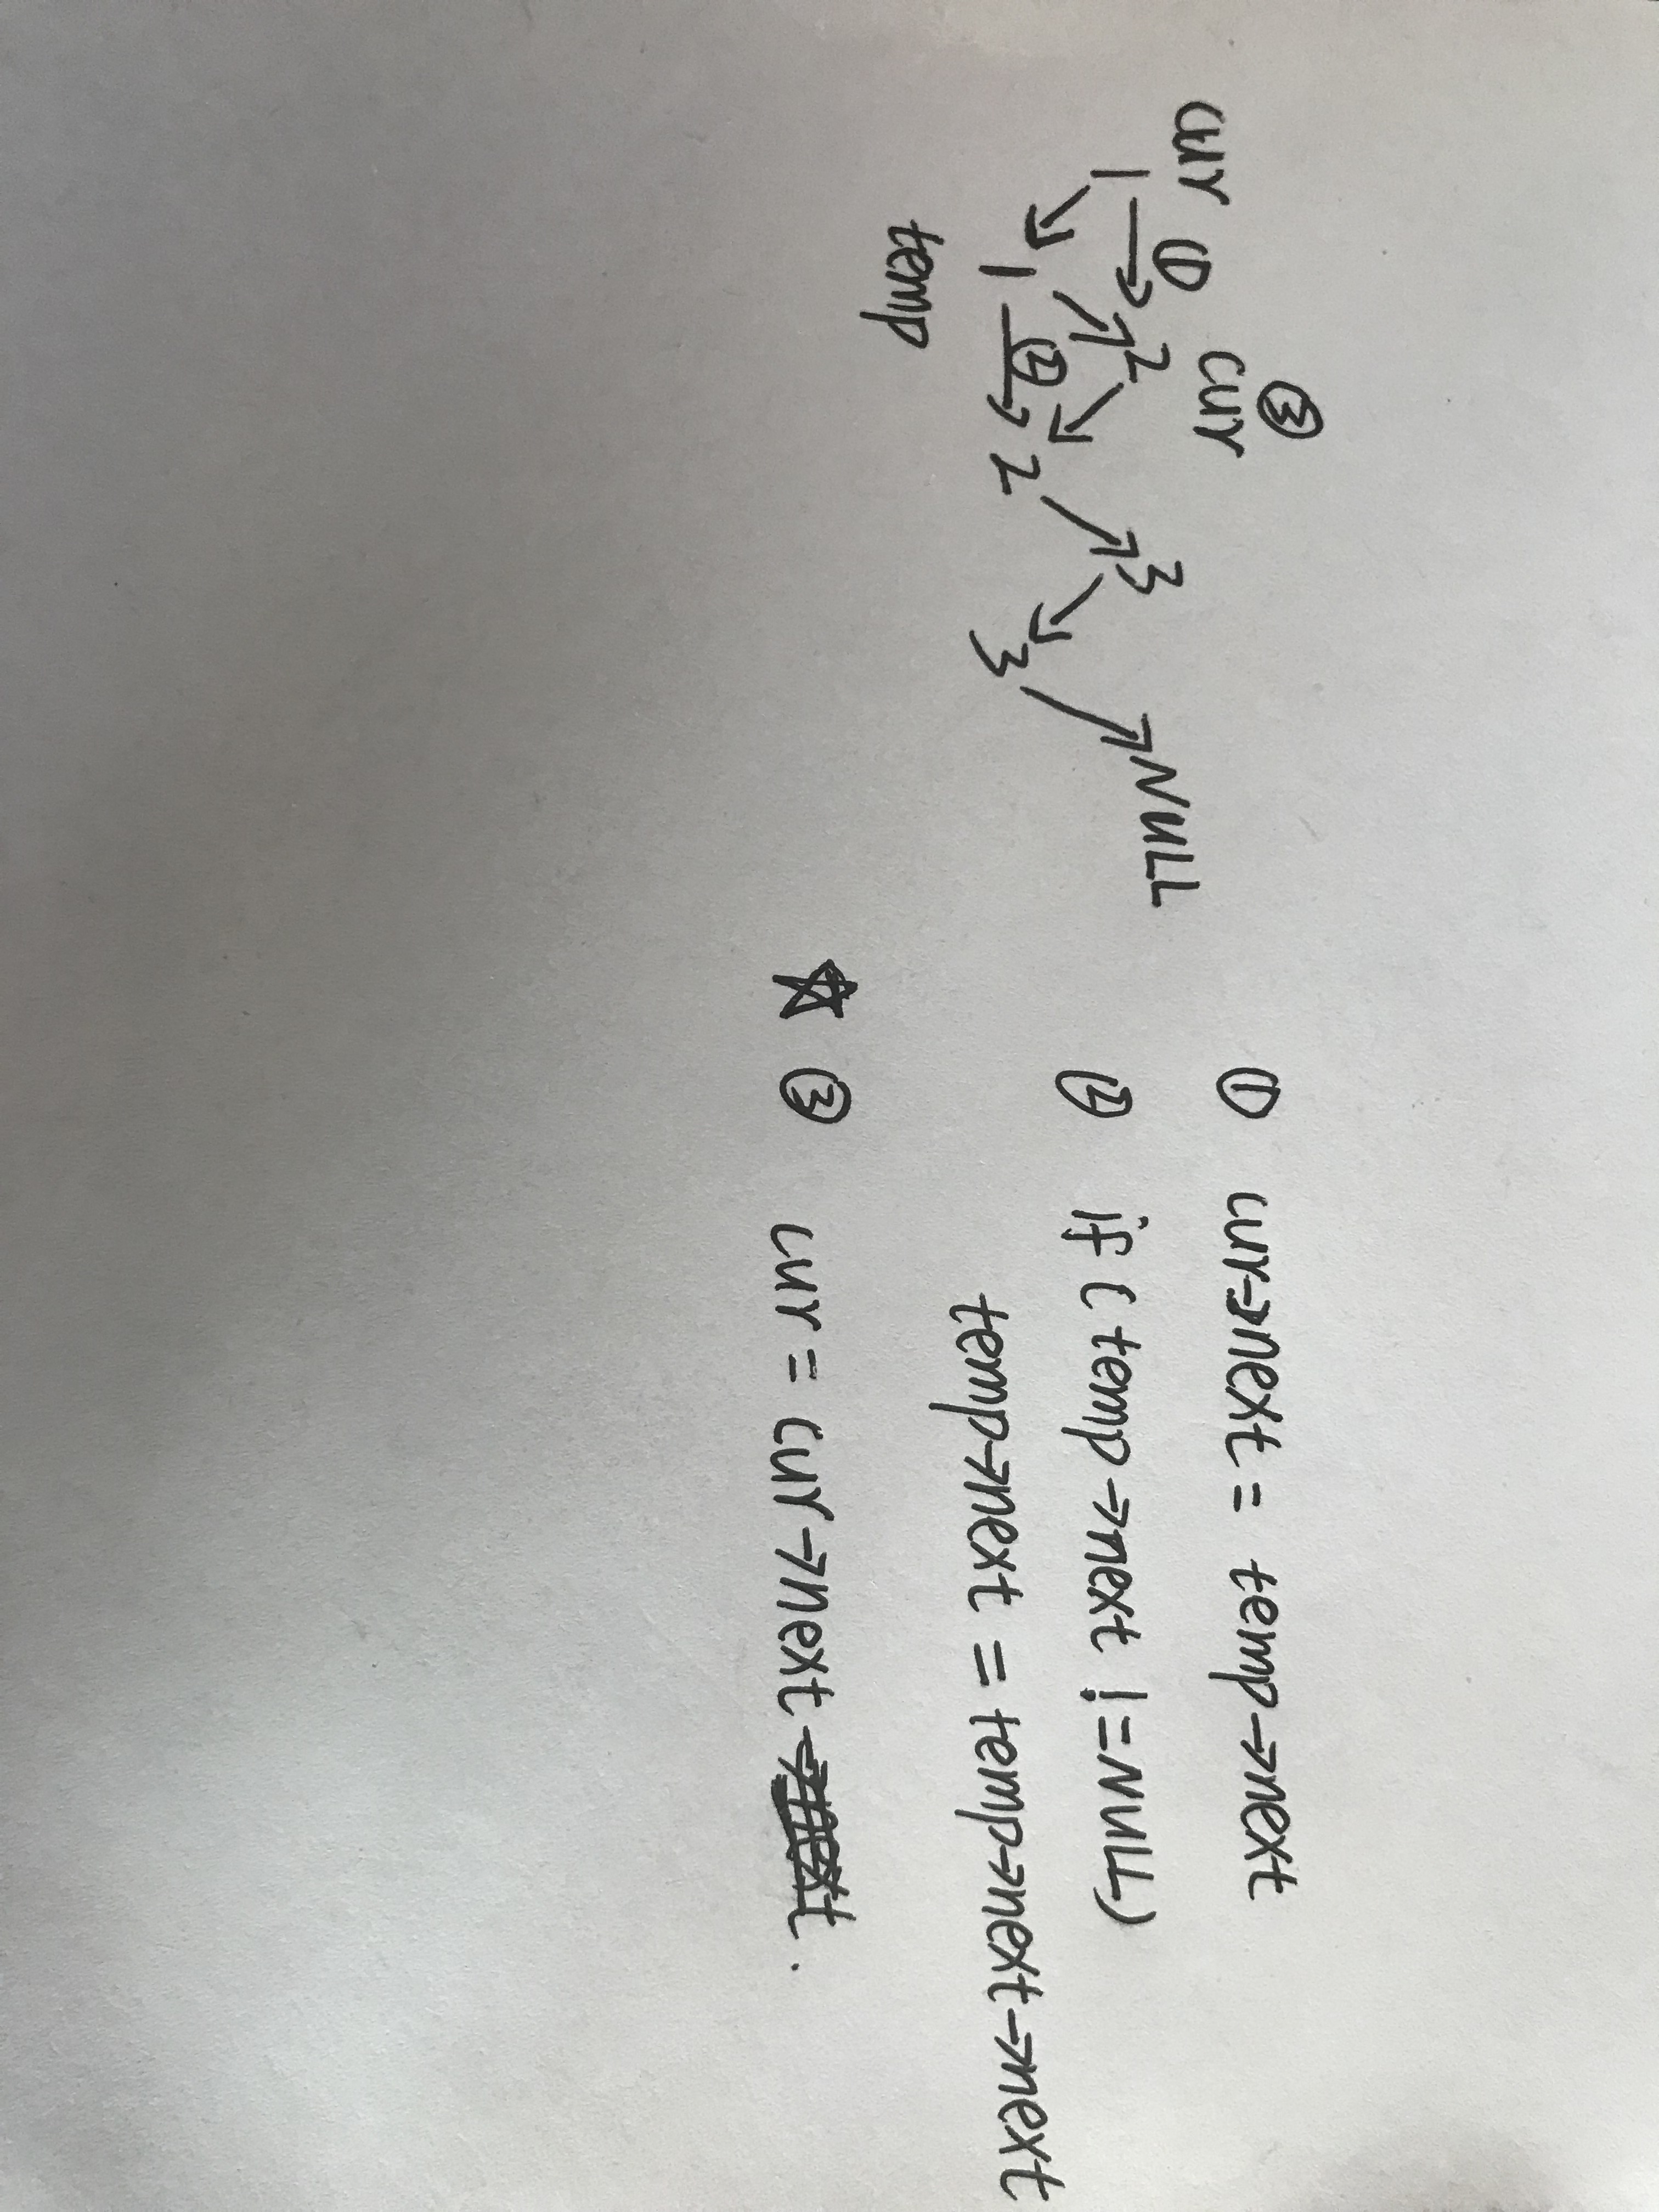 ③
cur ① cur
1 2 3 NULL
1 ② 2 3
temp
① cur->next = temp->next
② if (temp->next != NULL)
temp->next = temp->next->next
☆ ③ cur = cur->next